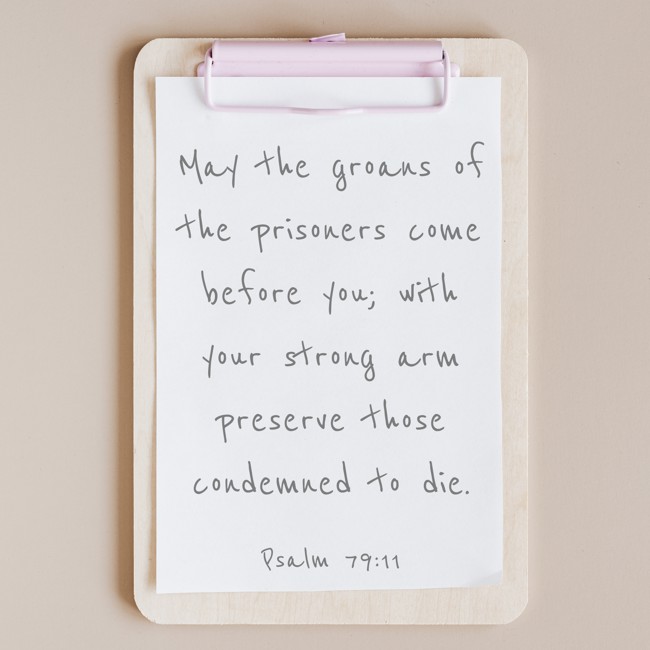 May the groans of
the prisoners come
before you; with
your strong arm
preserve those
condemned to die.
Psalm 79:11